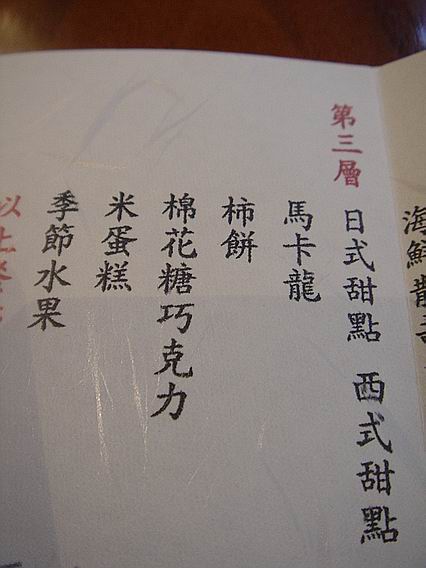 海鮮散壽
第三層
日式甜點 西式甜點
馬卡龍
柿餅
棉花糖巧克力
米蛋糕
季節水果
以上